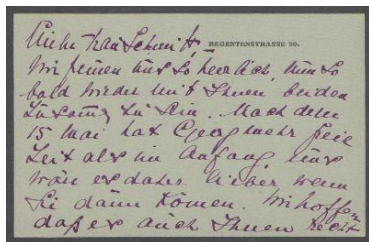 Liebe Frau Schmitt, REGENTENSTRASSE 20.
Wir freuen uns so herzlich, nun so
bald wieder mit Ihnen beiden
zu sein. Nach dem
15 Mai hat Georg mehr freie
Zeit als im Anfang, uns
wäre es daher lieber wenn
Sie dann kömen. Wir hoffen,
daß es auch Ihnen recht